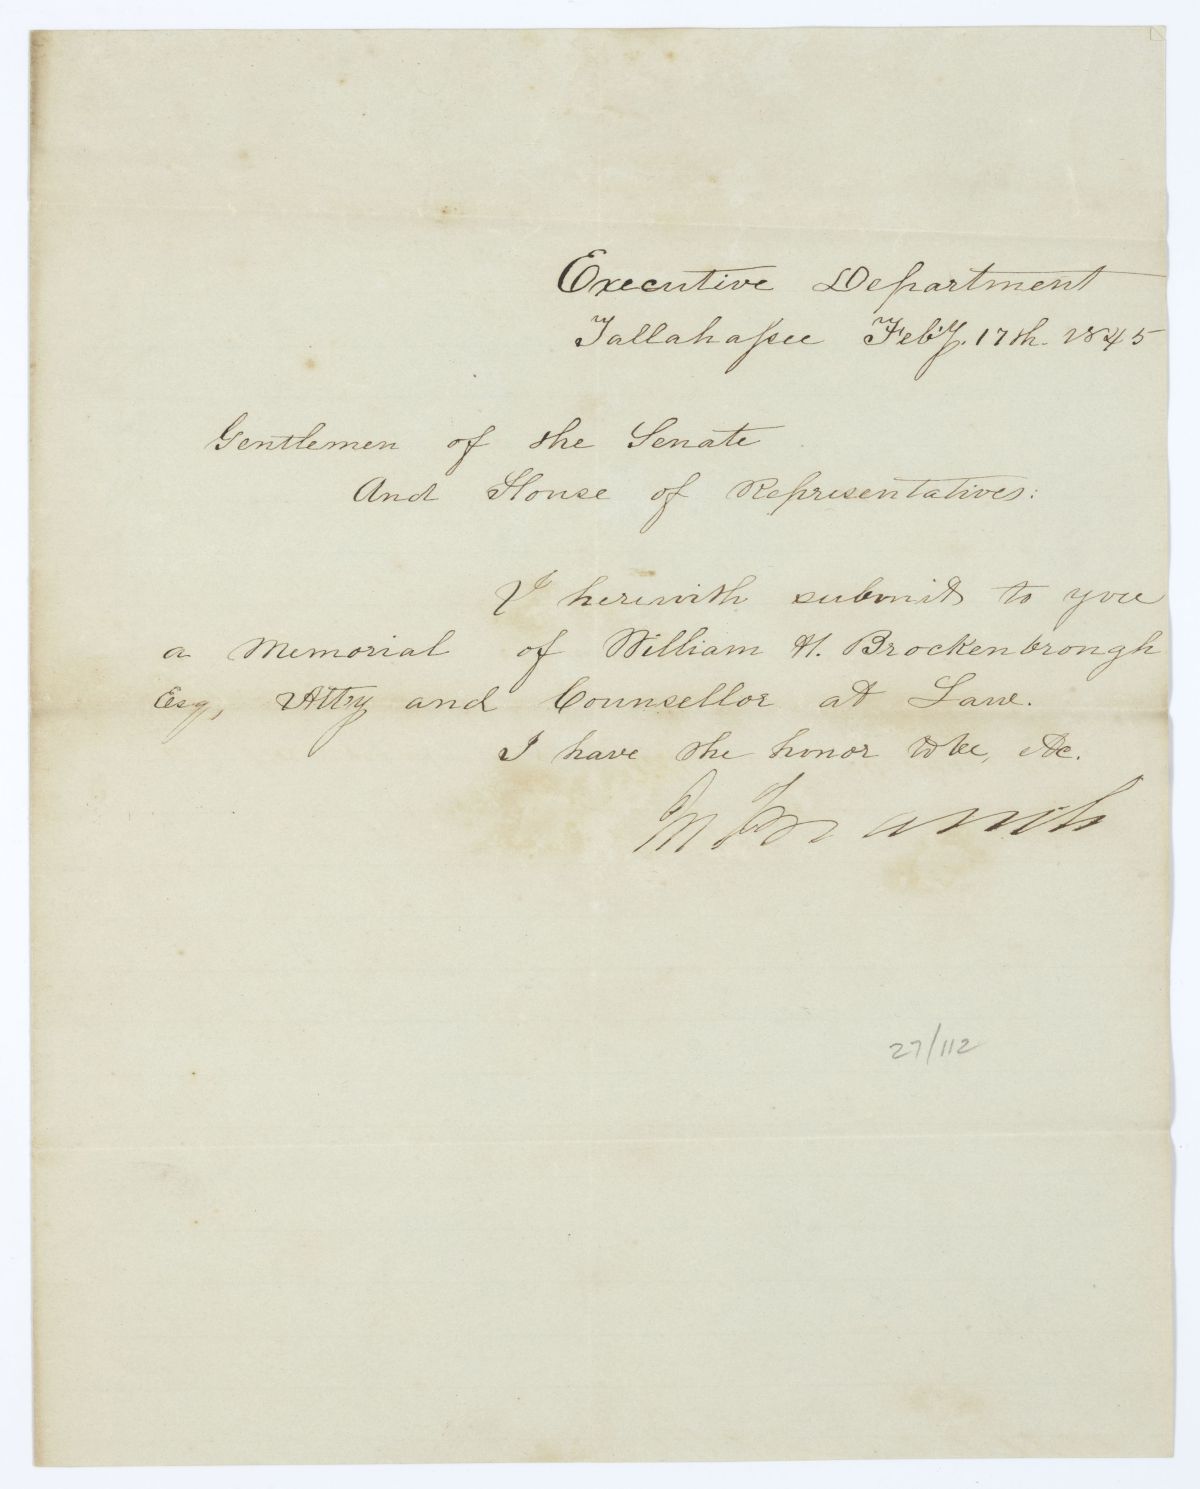 Executive Department
Tallahassee Feb'y. 17th. 1845
Gentlemen of the Senate
And House of Representatives:
I herewith submit to you
a Memorial of William H. Brockenbrough
Esq, Atty and Counsellor at Law.
I have the honor to be, &c.
27/112